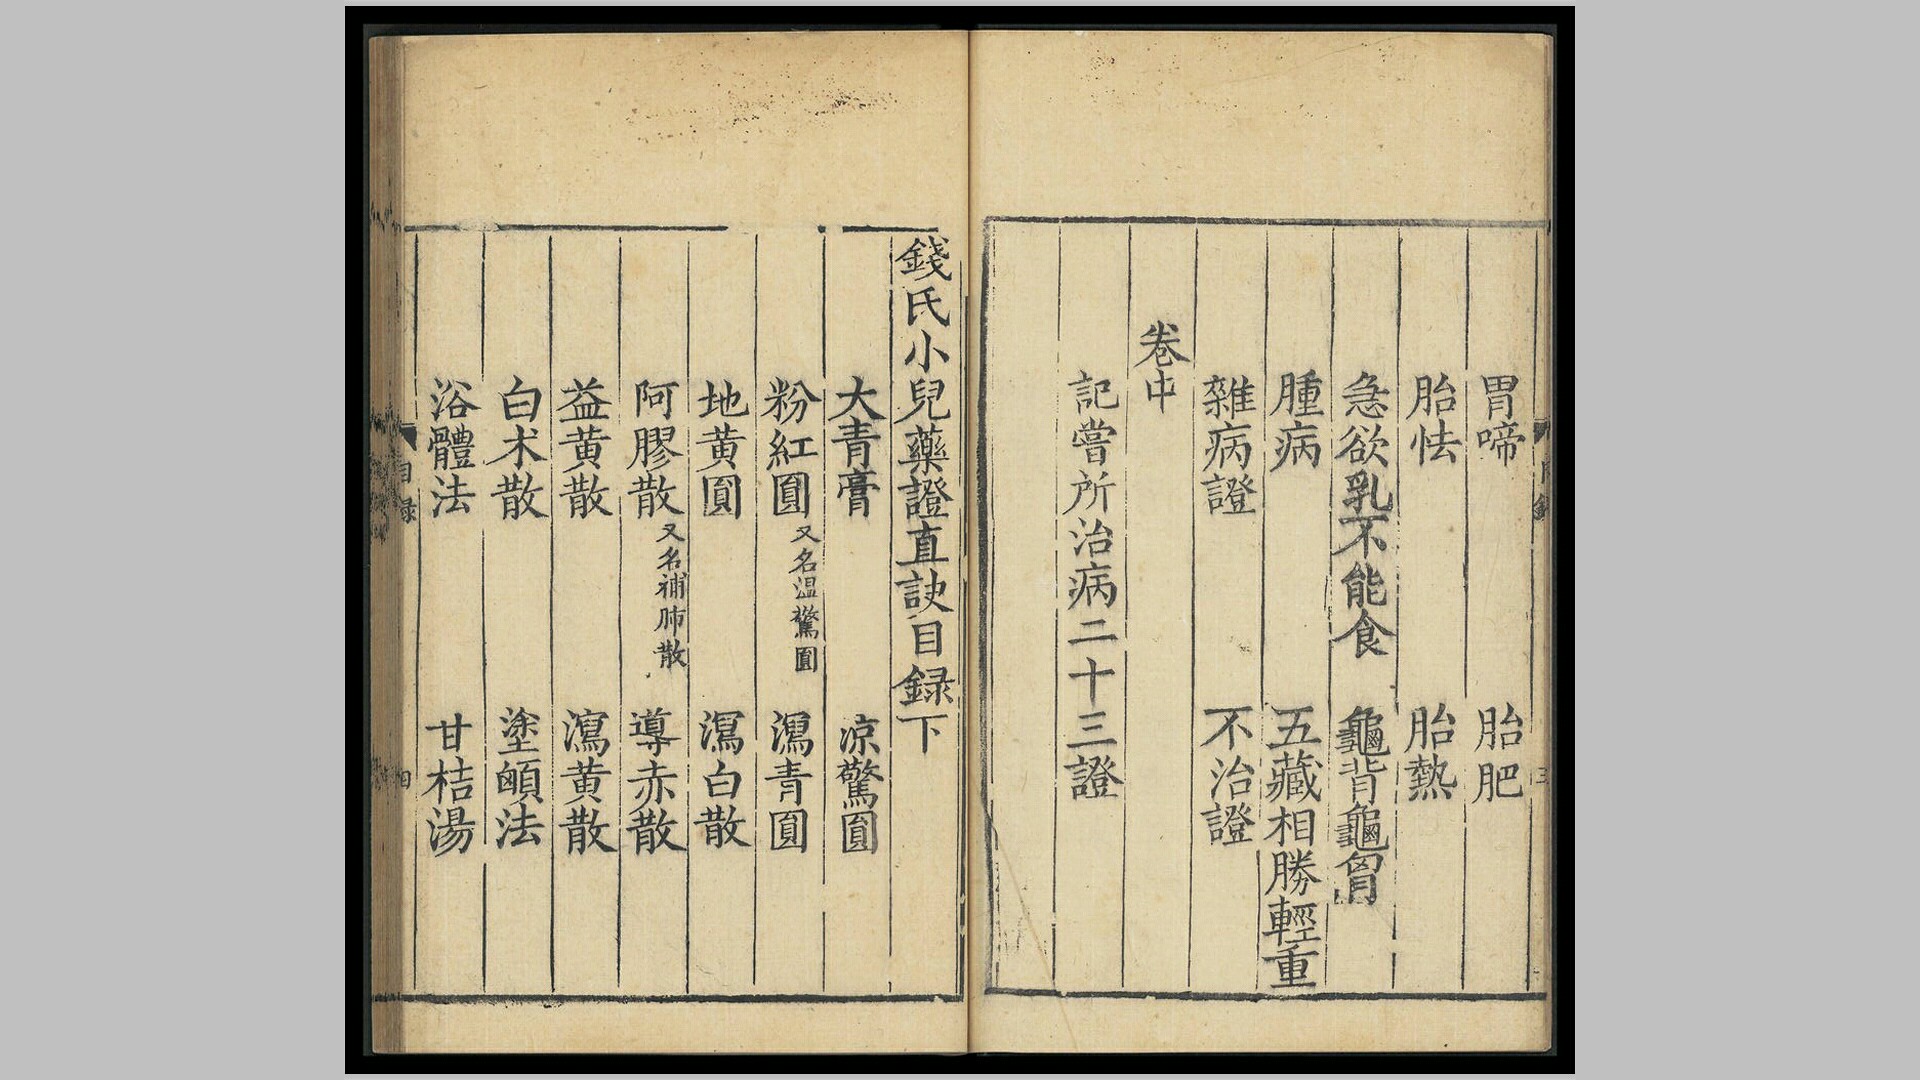 胃啼 胎肥
胎怯 胎熱
急欲乳不能食 龜背龜胷
腫病 五藏相勝輕重
雜病證 不治證
卷中
記嘗所治病二十三證
錢氏小兒藥證直訣目録下
大青膏 凉驚圎
粉紅圎又名温驚圎 瀉青圎
地黄圎 瀉白散
阿膠散又名補肺散 導赤散
益黄散 瀉黄散
白术散 塗頔法
浴體法 甘桔湯
目録
四